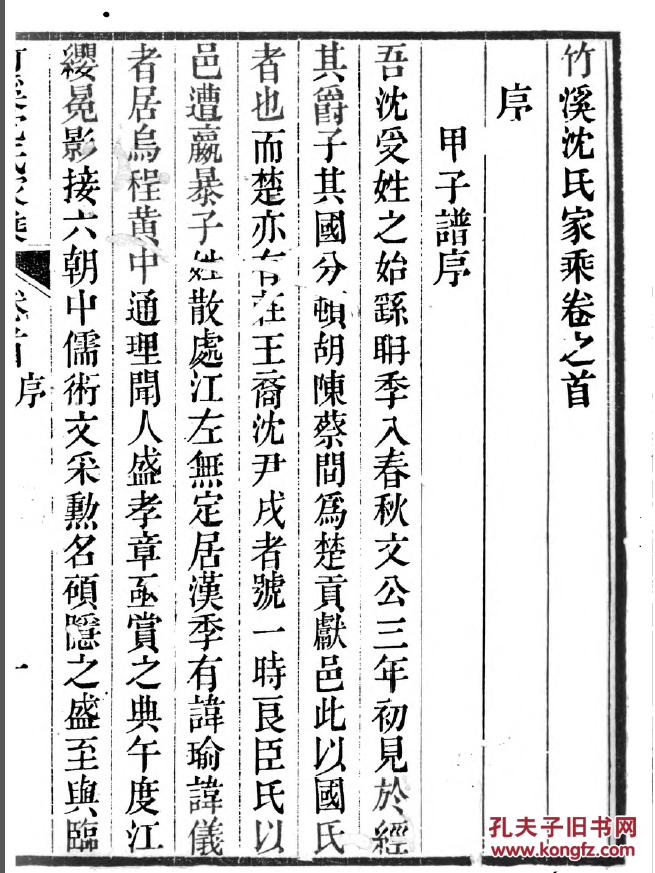 竹溪沈氏家乘卷之首
序
甲子譜序
吾沈受姓之始繇耼季入春秋文公三年初見於經
其爵子其國分頓胡陳蔡間爲楚貢獻邑此以國氏
者也而楚亦有莊王裔沈尹戌者號一時良臣氏以
邑遭嬴暴子姓散處江左無定居漢季有諱瑜諱儀
者居烏程黃中通理聞人盛孝章亟賞之典午度江
纓冕影接六朝中儒術文采勳名碩隱之盛至與臨
卷首 序
一
孔夫子旧书网
WWW.KONGFZ.COM